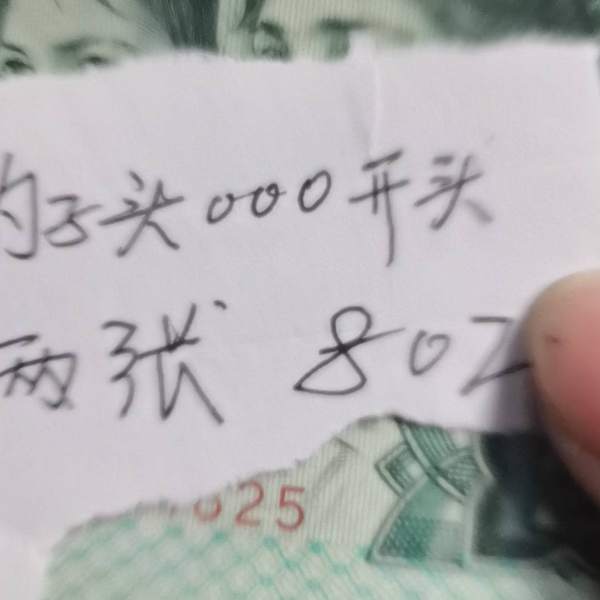 子头000开头
两张 802
025